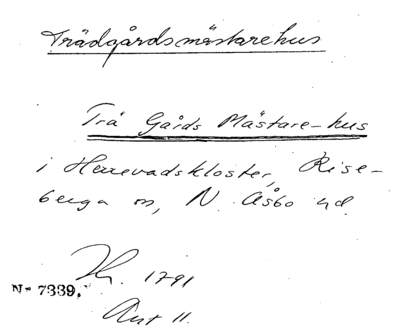 Trädgårdsmästarehus
Trä Gårds Mästare-hus
i Herrevadskloster, Rise-
berga sn, N. Åsbo hd.
Hr. 1791
No 7339.
Avt 11.